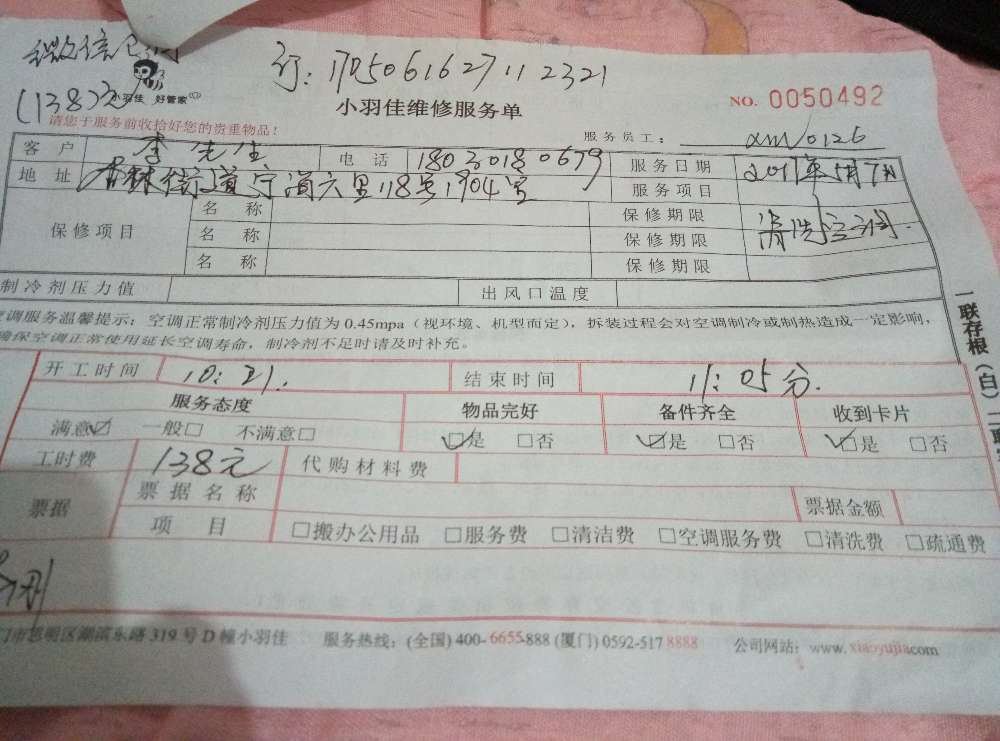 微信
订: 1705061627112321
(138)元
小羽佳 好管家
小羽佳维修服务单
NO. 0050492
请您于服务前收拾好您的贵重物品!
服务员工: xm0126
客 户 李先生 电 话 18030180679 服务日期 2017年5月7日
地 址 杏林街道宁海六里118号1904室 服务项目 清洗空调.
保修项目 名 称 保修期限
名 称 保修期限
名 称 保修期限
制冷剂压力值 出风口温度
调服务温馨提示: 空调正常制冷剂压力值为 0.45mpa (视环境、机型而定), 拆装过程会对空调制冷或制热造成一定影响,
确保空调正常使用延长空调寿命, 制冷剂不足时请及时补充。
开工时间 10:21. 结束时间 11:05分.
服务态度 物品完好 备件齐全 收到卡片
满意☑ 一般□ 不满意□ ☑是 □否 ☑是 □否 ☑是 □否
工时费 138元 代购材料费
票据 票据名称 票据金额
项 目 □搬办公用品 □服务费 □清洁费 □空调服务费 □清洗费 □疏通费
门市思明区湖滨东路 319 号 D 幢小羽佳 服务热线: (全国) 400-6655-888 (厦门) 0592-517 8888 公司网站: www.xiaoyujia.com
一联存根(白)二联